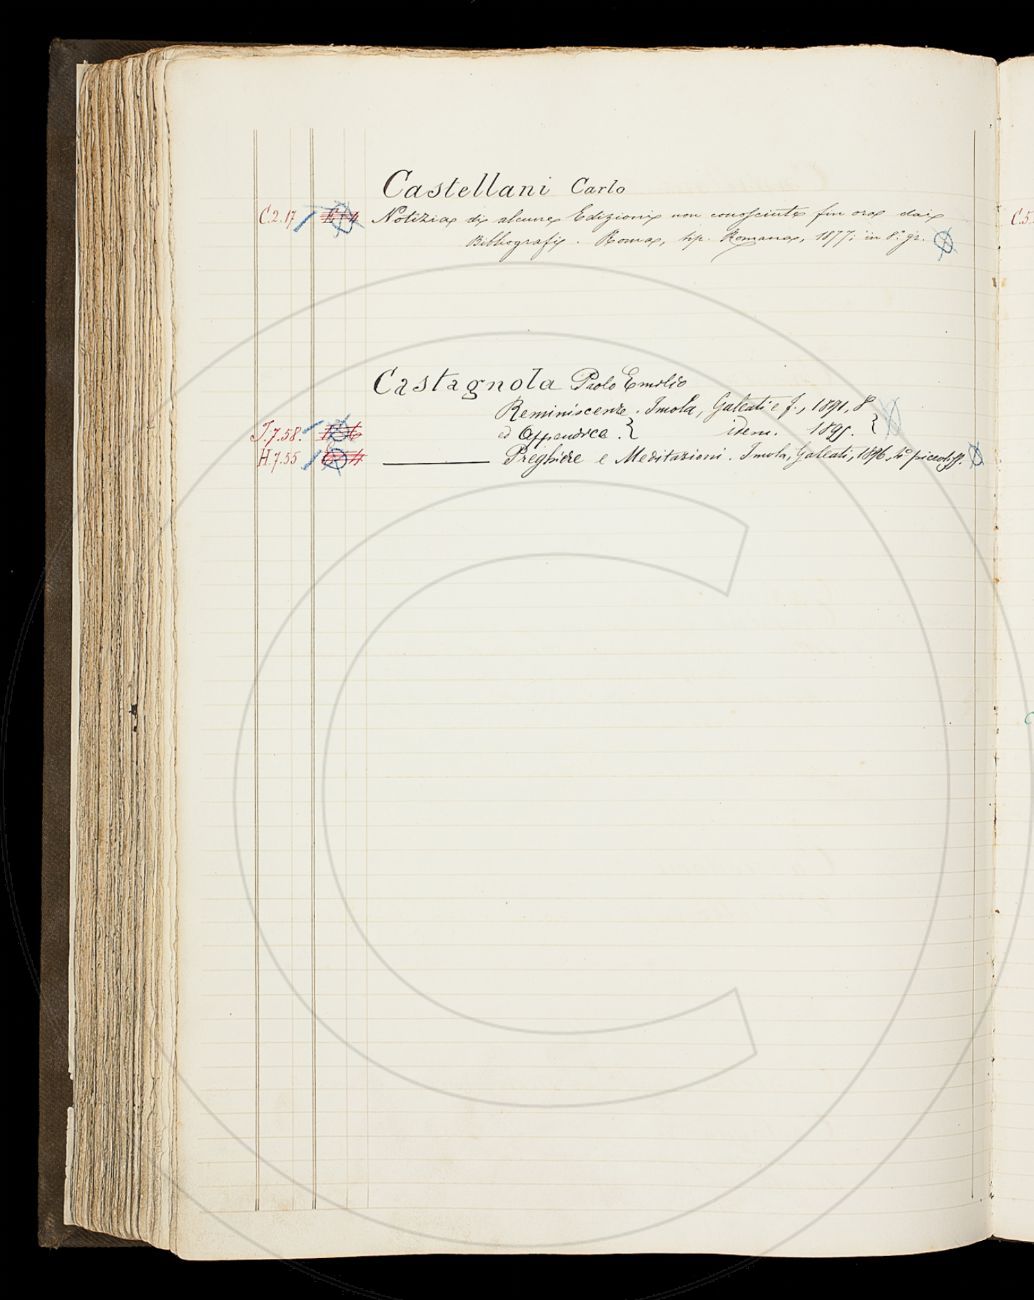 Castellani Carlo
C.2.17 Notizia di alcune Edizioni non conosciute fin ora dai
Bibliografi. Roma, tip. Romana, 1877; in 8.° gr.
Castagnola Paolo Emilio
Reminiscenze. Imola, Galeati e f., 1891, 8
J.7.58. ed Appendice. } idem. 1895. }
H.7.55 ——— Preghiere e Meditazioni. Imola, Galeati, 1896, 4° piccolo
C.5.